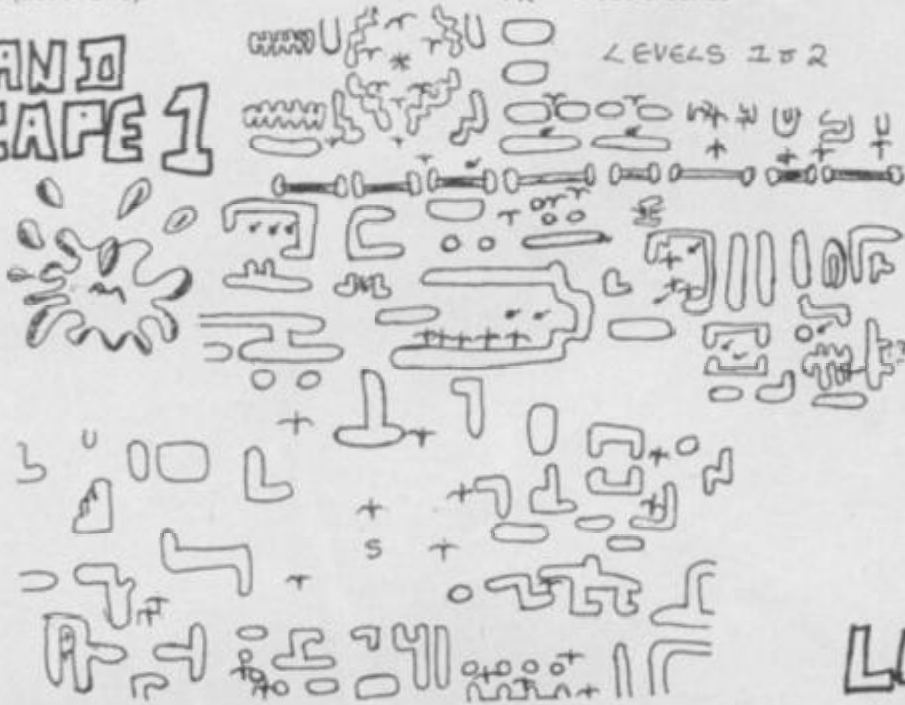 AND
CAPE 1
LEVELS 1 & 2
S